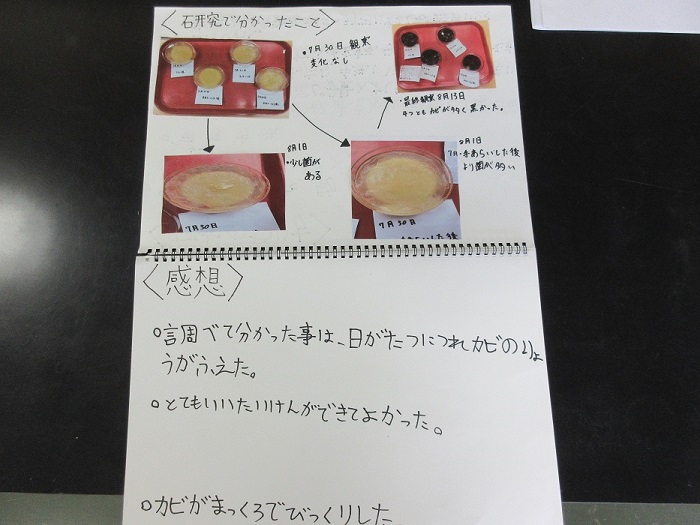 〈研究で分かったこと〉
・7月30日 観察
変化なし
・最終観察8月13日
4つともカビが多く黒かった。
8月1日
・少し菌が
ある
8月1日
・手あらいした後
より菌が多い
7月30日
7月30日
手あらいした後
〈感想〉
○調べて分かった事は、日がたつにつれカビのりょ
うがふえた。
○とてもいいたいけんができてよかった。
○カビがまっくろでびっくりした